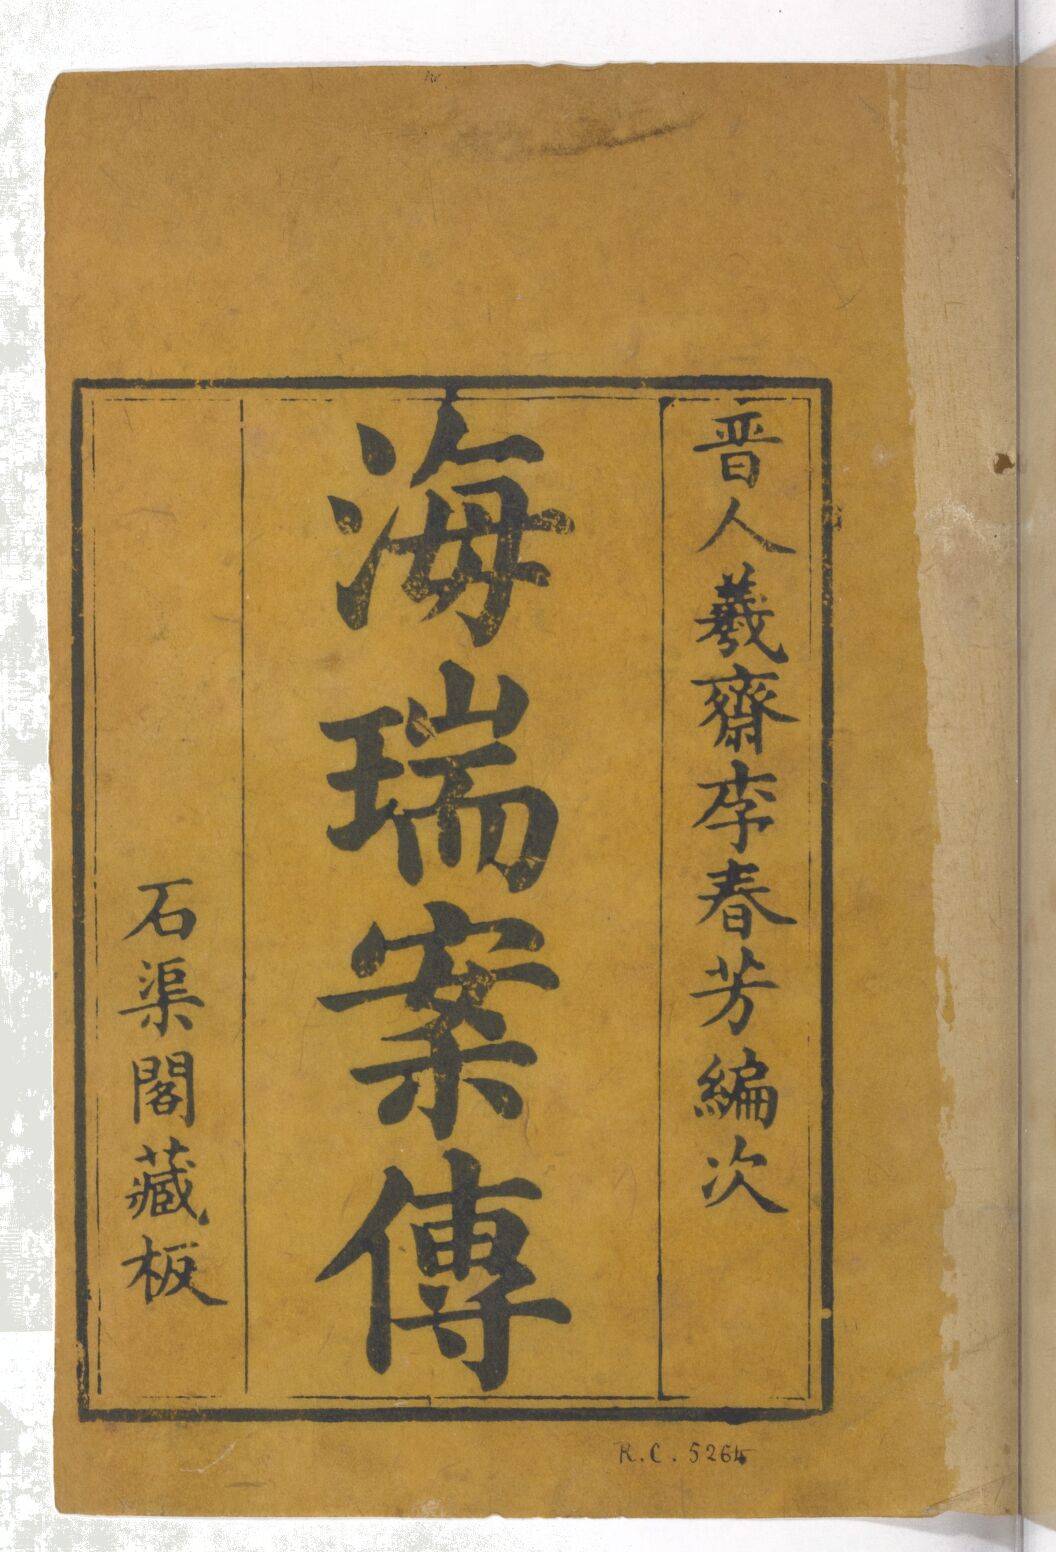 晋人羲齋李春芳編次
海瑞案傳
石渠閣藏板
R.C. 5264